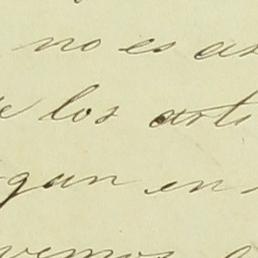 no es as
e los arti
gan en
vemos